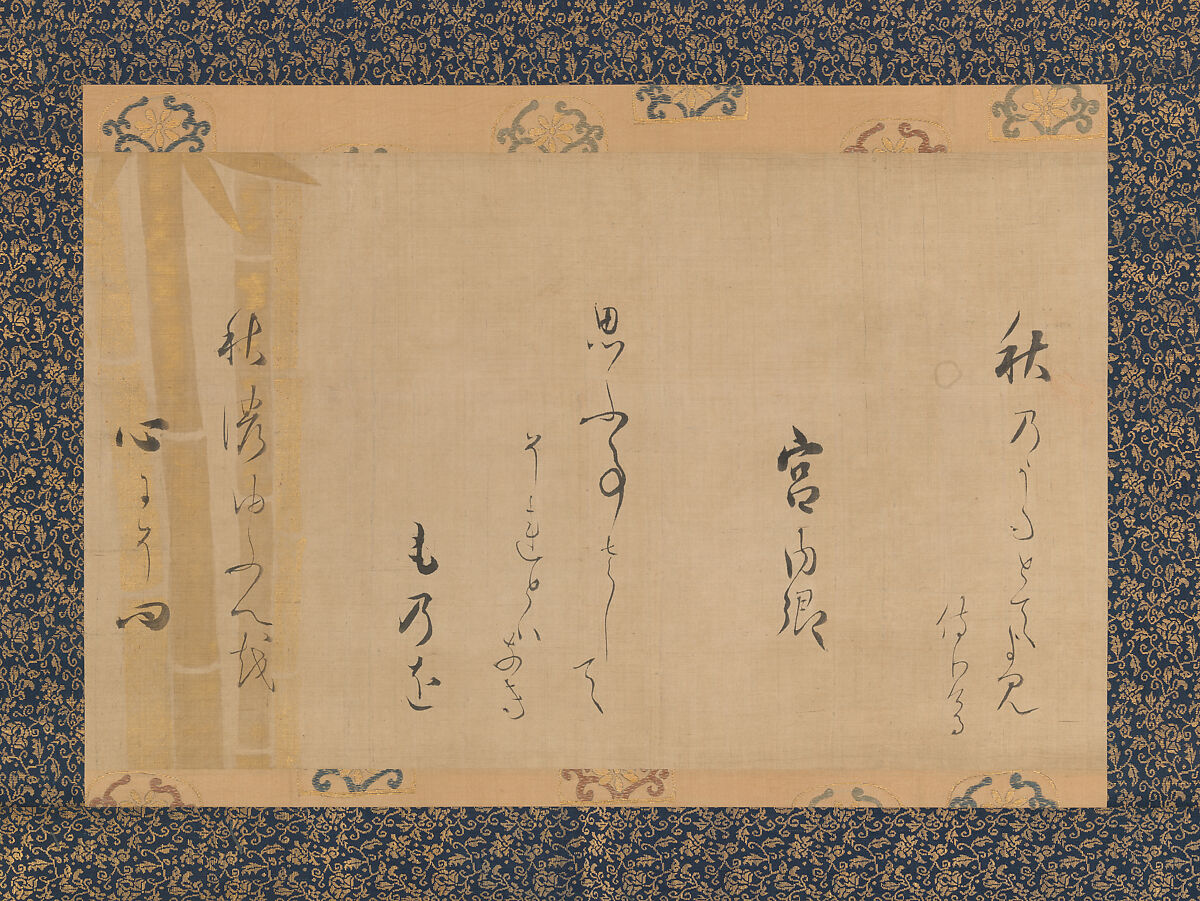 秋乃うたとてよ見
侍りける
宮内卿
思ふ事さして
それとはなき
も乃を
秋濃ゆふへ越
心にそ問